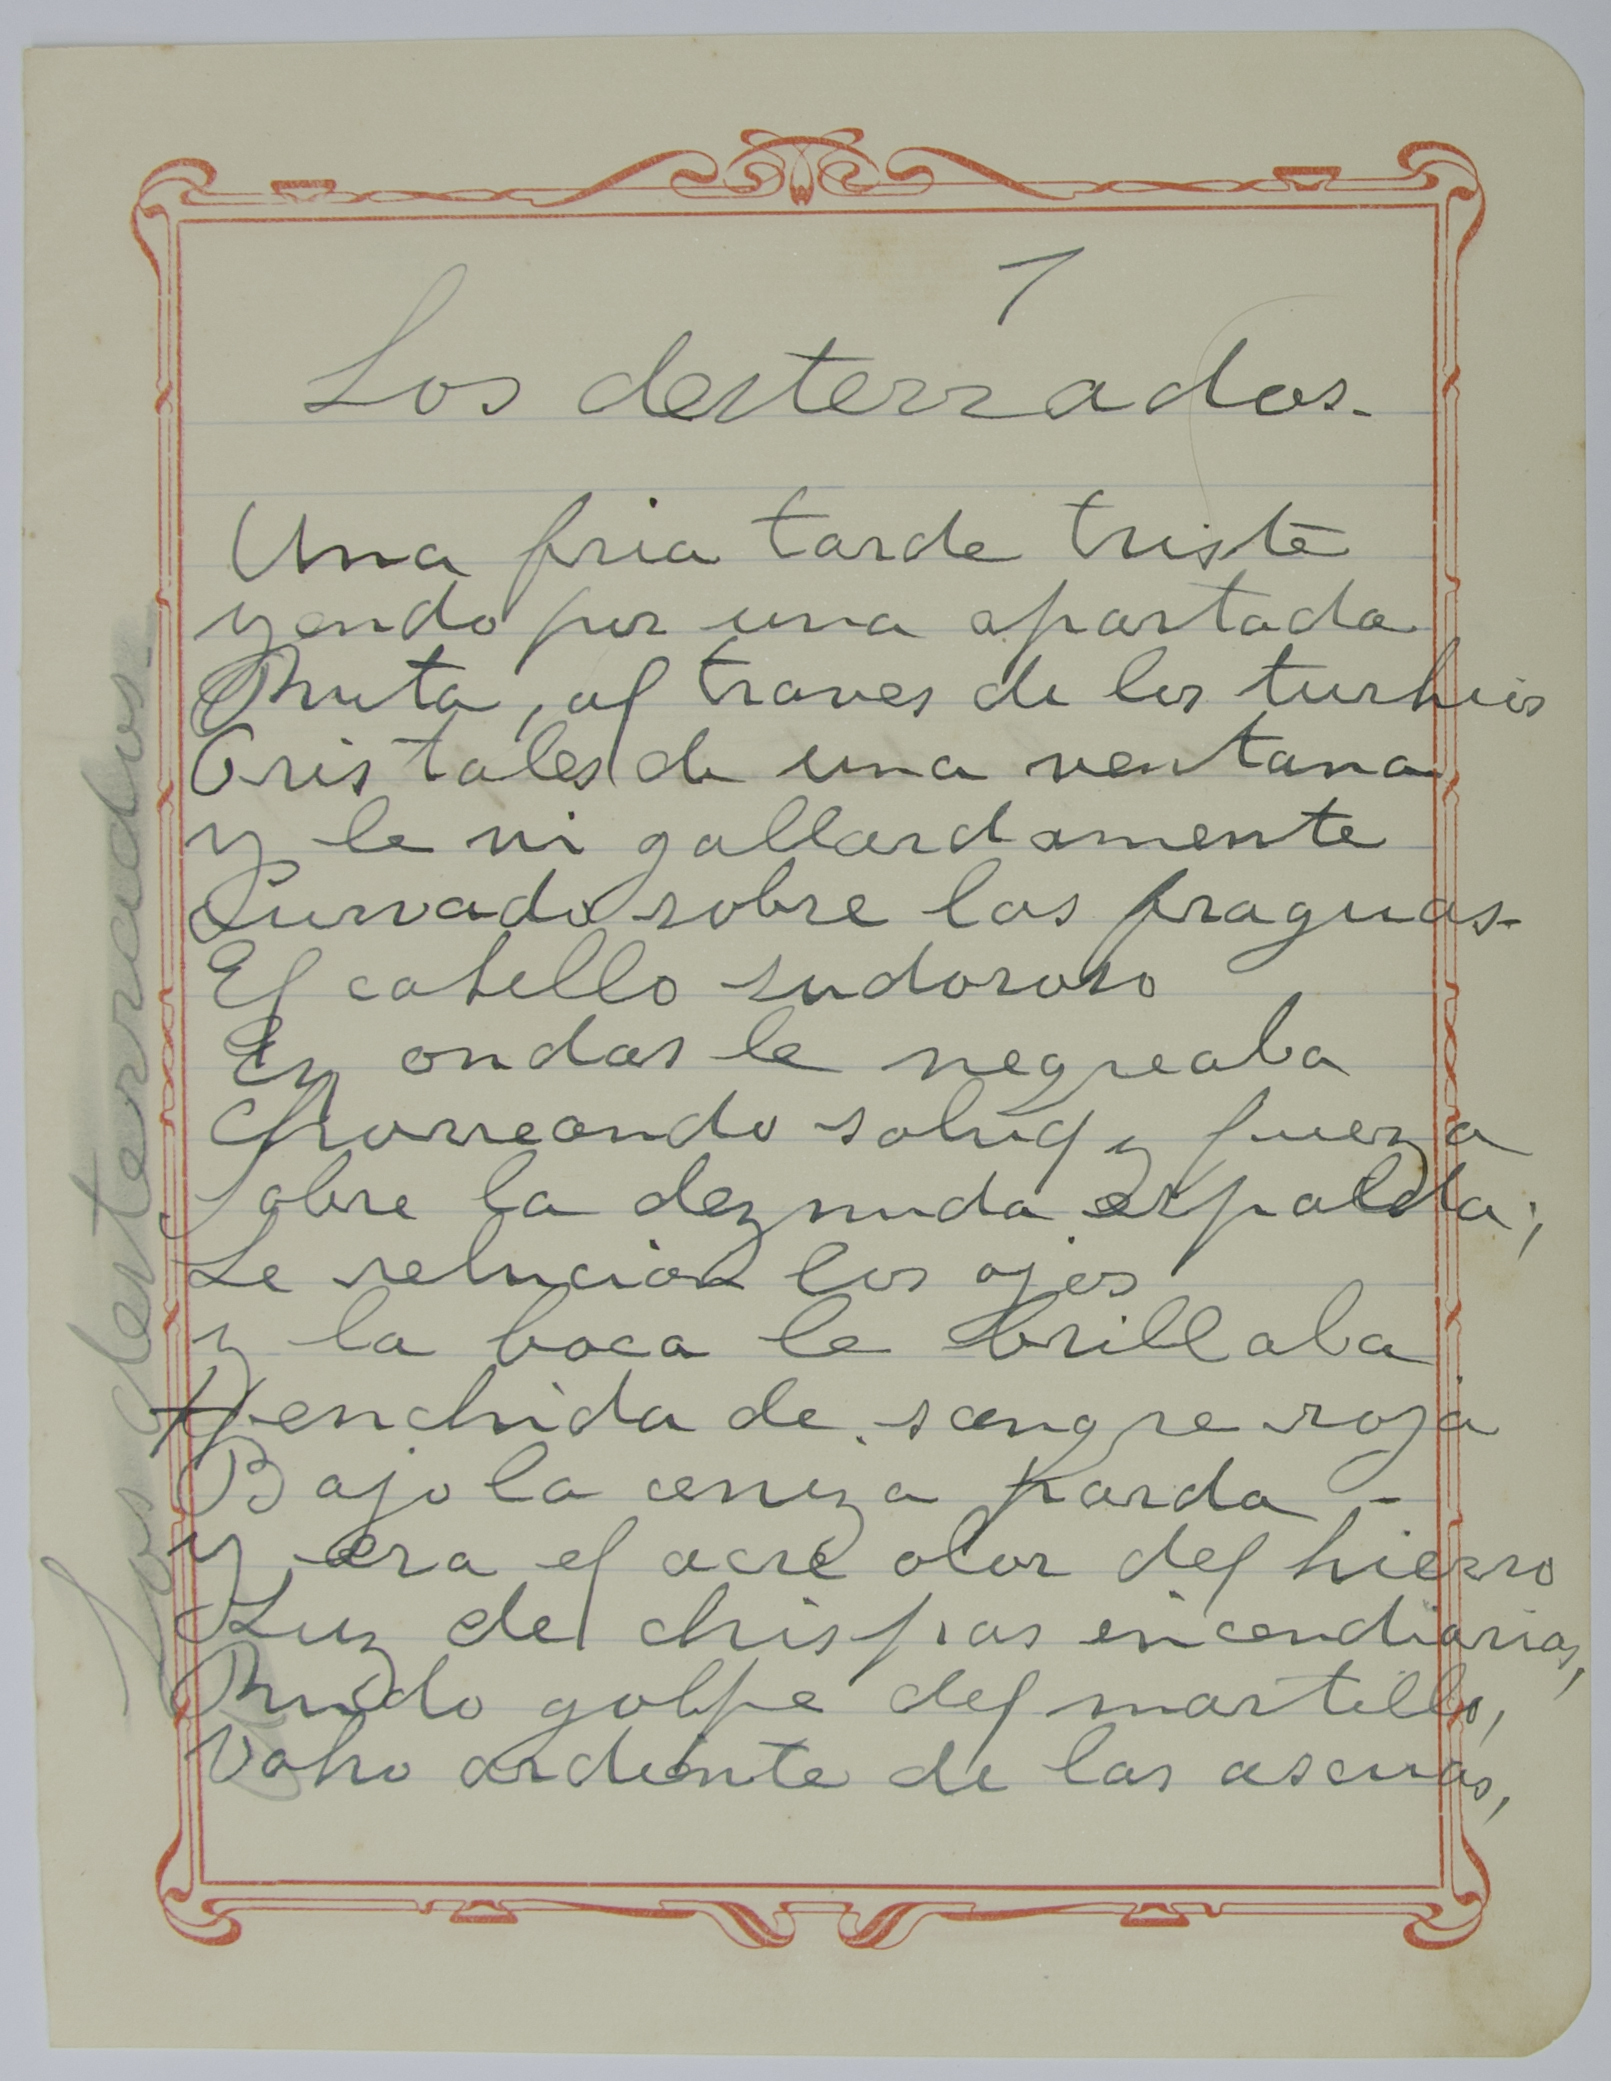 1
Los desterrados.
Una fria tarde triste
yendo por una apartada
Ruta, al traves de los turbios
Cristales de una ventana
y le vi gallardamente
Curvado sobre las fraguas.
El cabello sudoroso
En ondas le negreaba
Chorreando salud y fuerza
Sobre la deznuda espalda;
Le relucian los ojos
y la boca le brillaba
Henchida de sangre roja
Bajo la ceniza parda -
Y era el acre olor del hierro
Luz de chispas incendiarias,
Rudo golpe del martillo,
Vaho ardiente de las ascuas,
Los desterrados.